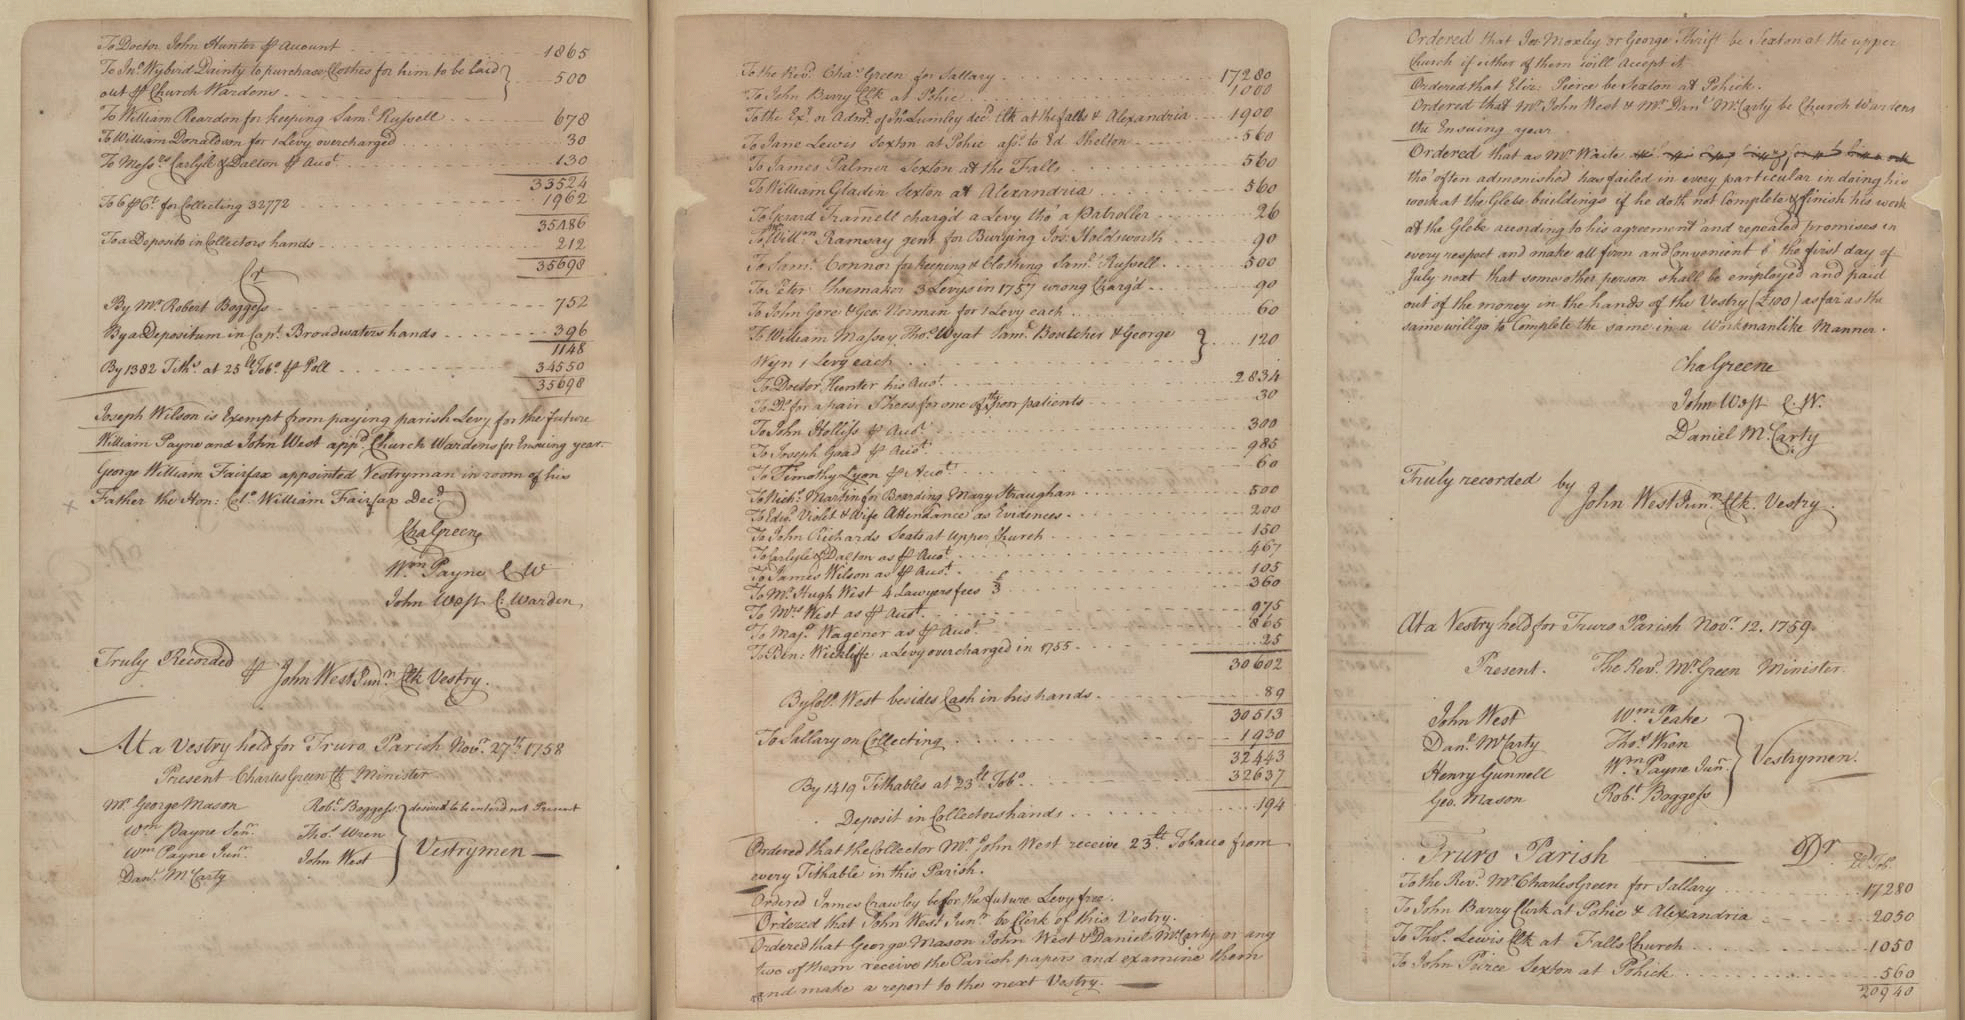 To Doctor John Hunter ⅌ Account 1865
To Jno. Wybird Dainty to purchase Clothes for him to be laid
out ⅌ Church Wardens 500
To William Reardon for keeping Saml. Russell 678
To William Donaldson for 1 Levy overcharged 30
To Messrs. Carlyle & Dalton ⅌ Acct. 130
33524
To 6 ⅌ Ct. for Collecting 32772 1962
35486
To a Deposito in Collectors hands 212
35698
Cr
By Mr. Robert Boggess 752
By a Depositum in Capt. Broadwaters hands 396
1148
By 1382 Tiths. at 25 lt Tobo. ⅌ Poll 34550
35698
Joseph Wilson is Exempt from paying parish Levy for the future
William Payne and John West appd. Church Wardens for Ensuing year
George William Fairfax appointed Vestryman in room of his
Father the Hon: Colo. William Fairfax Decd.
Cha Greene
Wm Payne C W
John West C. Warden
Truly Recorded ⅌
John West Junr. Clk Vestry.
At a Vestry held for Truro Parish Novr. 27th 1758
Present Charles Green Clk Minister
Mr George Mason Robt. Boggess desired to be enterd not Present
Wm Payne Senr. Thos. Wren
Wm Payne Junr. John West Vestrymen
Danl. McCarty
To the Revd. Chas. Green for Sallary 17280
To John Barry Clk at Pohic 1000
To the Exr. or Admr. of Jno. Lumley decd. Clk at the falls & Alexandria 1900
To Jane Lewis Sexton at Pohic assd. to Ed. Shelton 560
To James Palmer Sexton at the Falls 560
To William Gladin Sexton at Alexandria 560
To Gerard Tramell charg'd a Levy tho' a Patroller 26
To Mr. Willm Ramsay gent for Burying Jos: Holdsworth 90
To Saml. Connor for keeping & Clothing Saml. Russell 500
To Peter Shoemaker 3 Levys in 1757 wrong Charg'd 90
To John Gore & Geo: Norman for 1 Levy each 60
To William Massey Thos. Wyat Saml. Boutcher & George
Wyn 1 Levy each 120
To Doctor Hunter his Acct. 2834
To Do. for a pair Shoes for one of the poor patients 30
To John Holliss ⅌ Acct. 300
To Joseph Goad ⅌ Acct. 985
To Timothy Lyon ⅌ Acct. 60
To Richd. Martin for Boarding Mary Straughan 500
To Edwd. Violet & Wife Attendance as Evidences 200
To John Richards Seats at Upper Church 150
To Carlyle & Dalton as ⅌ Acct. 467
To James Wilson as ⅌ Acct. 105
To Mr. Hugh West 4 Lawyers fees £3 360
To Mrs West as ⅌ Acct. 975
To Majr. Wagener as ⅌ Acct. 865
To Ben: Wickliffe a Levy overcharged in 1755 25
30602
By Colo. West besides Cash in his hands 89
30513
To Sallary on Collecting 1930
32443
By 1419 Tithables at 23 lt Tobo. 32637
Deposit in Collectors hands 194
Ordered that the Collector Mr. John West receive 23 lt. Tobacco from
every Tithable in this Parish.
Ordered James Crawley be for the future Levy free.
Ordered that John West Junr be Clerk of this Vestry.
Ordered that George Mason John West & Daniel McCarty or any
two of them receive the Parish papers and examine them
and make a report to the next Vestry.
Ordered that Jos Moxley or George Thrift be Sexton at the upper
Church if either of them will Accept it
Ordered that Eliz: Pierce be Sexton at Pohick.
Ordered that Mr. John West & Mr. Danl. McCarty be Church Wardens
the Ensuing year
Ordered that as Mr Waite
tho' often admonished has failed in every particular in doing his
work at the Glebe buildings if he doth not Complete & finish his work
at the Glebe according to his agreement and repeated promises in
every respect and make all firm and Convenient by the first day of
July next that some other person shall be employed and paid
out of the money in the hands of the Vestry (£100) as far as the
same will go to Complete the same in a Workmanlike Manner.
Cha Greene
John West C. W.
Daniel McCarty
Truly recorded by
John West Junr. Clk. Vestry.
At a Vestry held for Truro Parish Novr. 12. 1759.
Present. The Revd. Mr Green Minister.
John West Wm Peake
Danl. McCarty Thos Wren
Henry Gunnell Wm Payne Junr. Vestrymen.
Geo. Mason Robt. Boggess
Truro Parish Dr lb Tob.
To the Revd. Mr Charles Green for Sallary 17280
To John Barry Clerk at Pohic & Alexandria 2050
To Thos. Lewis Clk at Falls Church 1050
To John Peirce Sexton at Pohick 560
20940